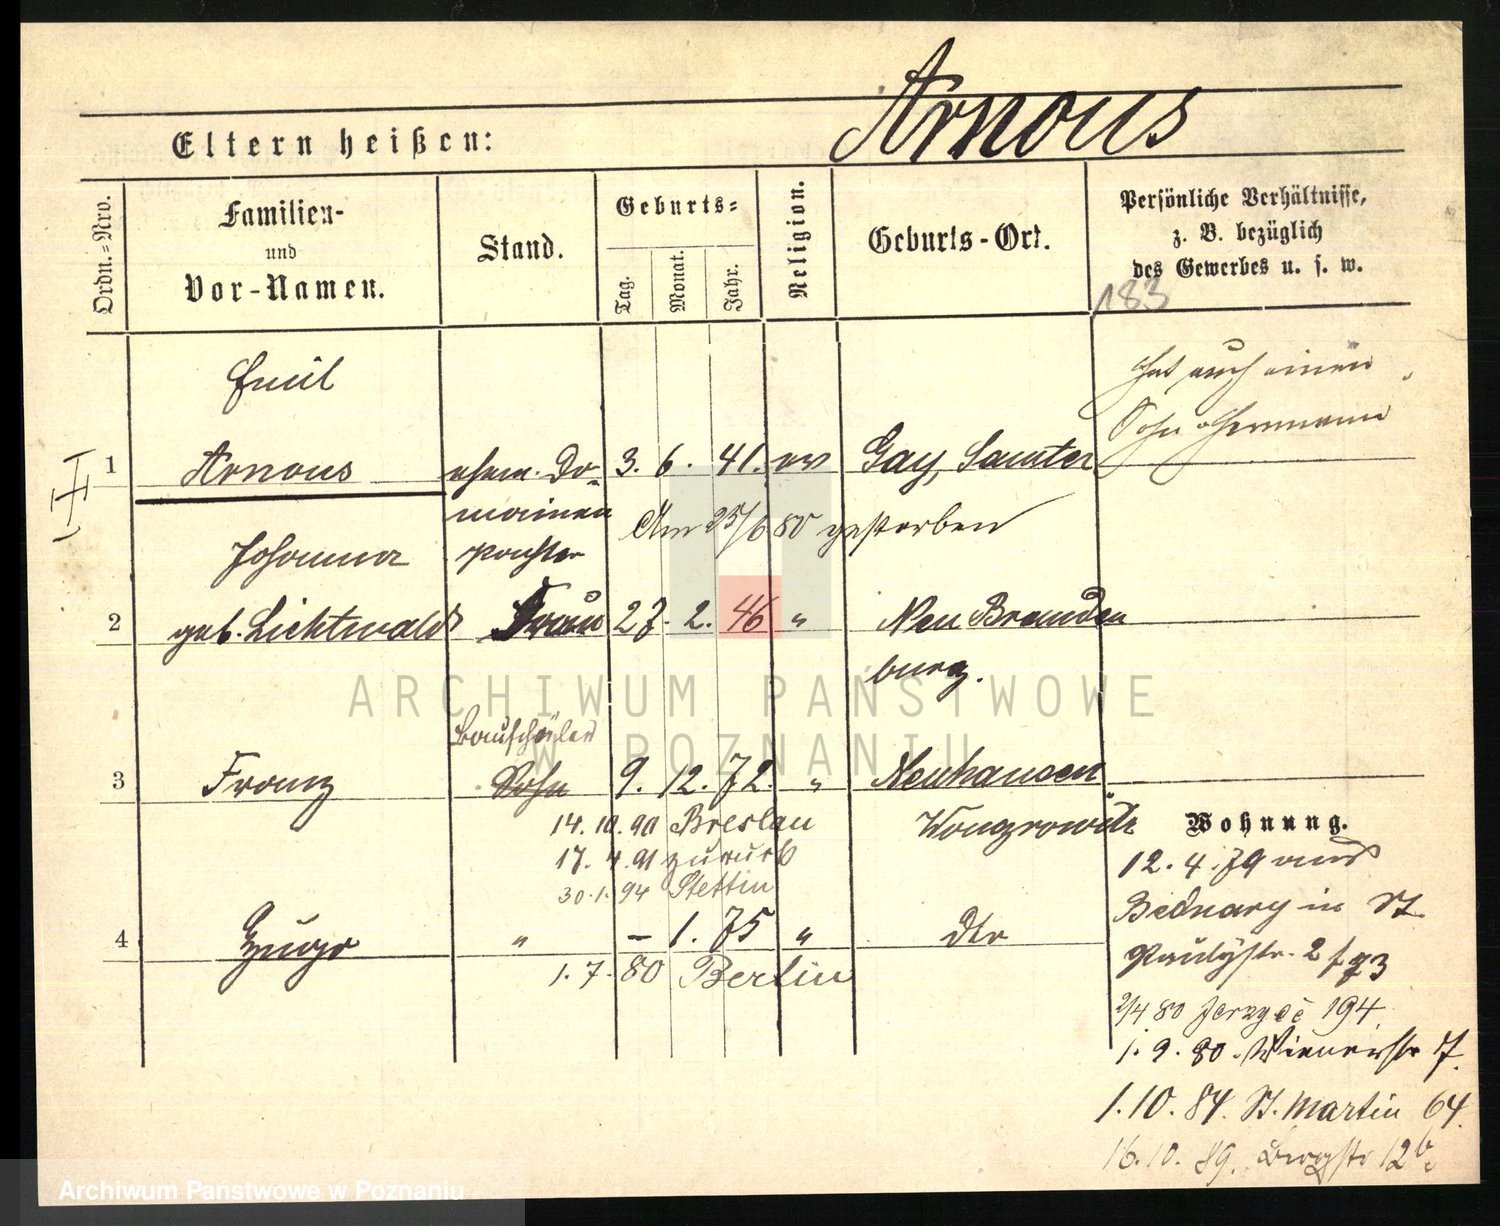 Arnous
Eltern heißen:
Ordn.=Nro.
Familien-
und
Vor-Namen.
Stand.
Geburts=
Tag.
Monat.
Jahr.
Religion.
Geburts-Ort.
Persönliche Verhältnisse,
z. B. bezüglich
des Gewerbes u. s. w.
183
Emil
hat auch einen
Sohn Hermann
1 Arnous ehem. Do- 3. 6. 41. ev Gay, Samter
mainen
Am 25/6 80 gestorben
Johanna pachter
2 geb. Lichtwald Frau 27. 2. 46 " Neu Branden
burg.
Bauschüler
3 Franz Sohn 9. 12. 72. " Neuhausen
14. 10. 90 Breslau
Wongrowitz
17. 4. 91 zurück
30. 1. 94 Stettin
4 " – 1. 75 " dto
1. 7. 80 Berlin
Wohnung.
12. 4. 79 aus
Bednary in St.
Paulystr. 2
2/4 80 194
1. 9. 80. Wienerstr 7.
1. 10. 84. St. Martin 64.
16. 10. 89. Bergstr 12b.
ARCHIWUM PAŃSTWOWE
W POZNANIU
Archiwum Państwowe w Poznaniu